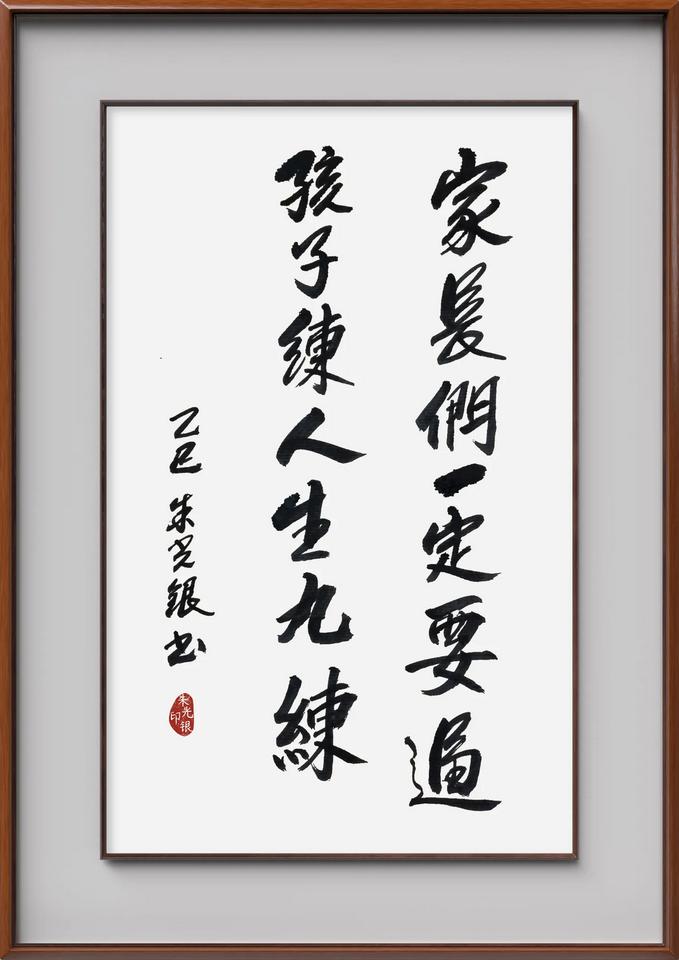 家長們一定要逼
孩子練人生九練
乙巳 朱光銀书
朱光银印